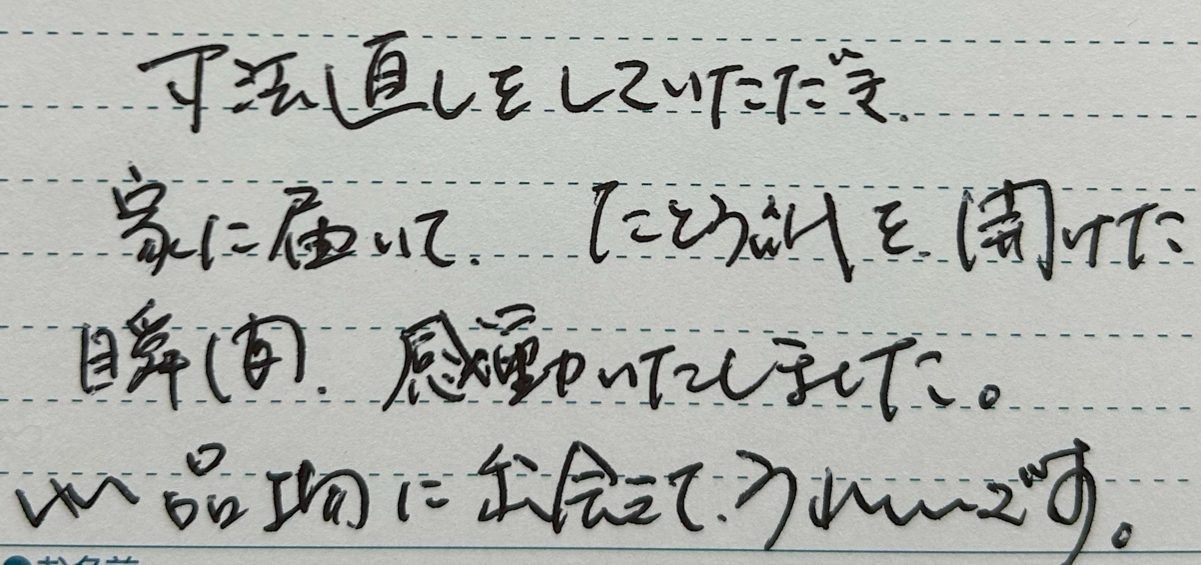 寸法直しをしていただき、
家に届いて、たとう紙を、開けた
瞬間、感動いたしました。
いい品物に出会えて、うれしいです。
お名前